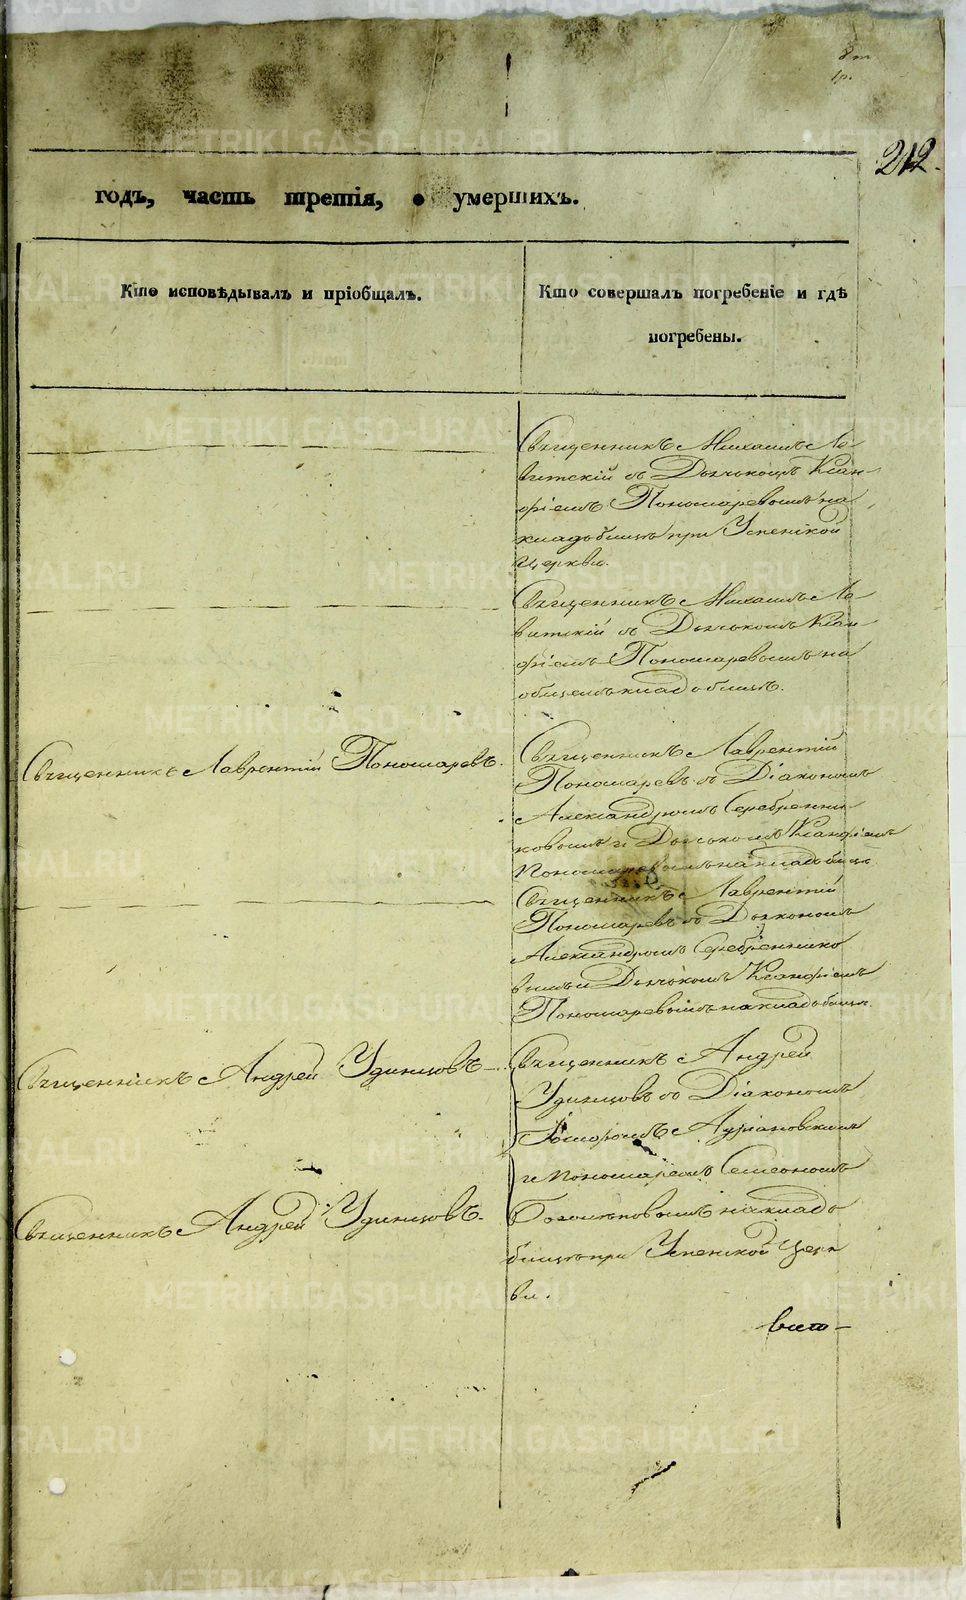 212.
годъ, часть третія, о умершихъ.
Кто исповѣдывалъ и пріобщалъ.
Кто совершалъ погребеніе и гдѣ
погребены.
Священникъ Михаилъ Ле-
витскій съ Дьячкомъ Ксан-
фіемъ Пономаревымъ на
кладбищѣ при Успенской
Церкви.
Священникъ Михаилъ Ле-
витскій съ Дьячкомъ Ксан
фіемъ Пономаревымъ на
общемъ кладбищѣ.
Священникъ Лаврентій Пономаревъ.
Священникъ Лаврентій
Пономаревъ съ Діакономъ
Александромъ Серебренни-
ковымъ и Дьячкомъ Ксанфіемъ
Пономаревымъ на кладбищѣ.
Священникъ Лаврентій
Пономаревъ съ Діакономъ
Александромъ Серебреннико
вымъ и Дьячкомъ Ксанфіемъ
Пономаревымъ на кладбищѣ.
Священникъ Андрей Удинцовъ
Священникъ Андрей
Удинцовъ съ Діакономъ
Адріановскимъ
и пономаремъ Симеономъ
на кладб
бищѣ при Успенской Церк
ви.
Священникъ Андрей Удинцовъ.
METRIKI.GASO-URAL.RU